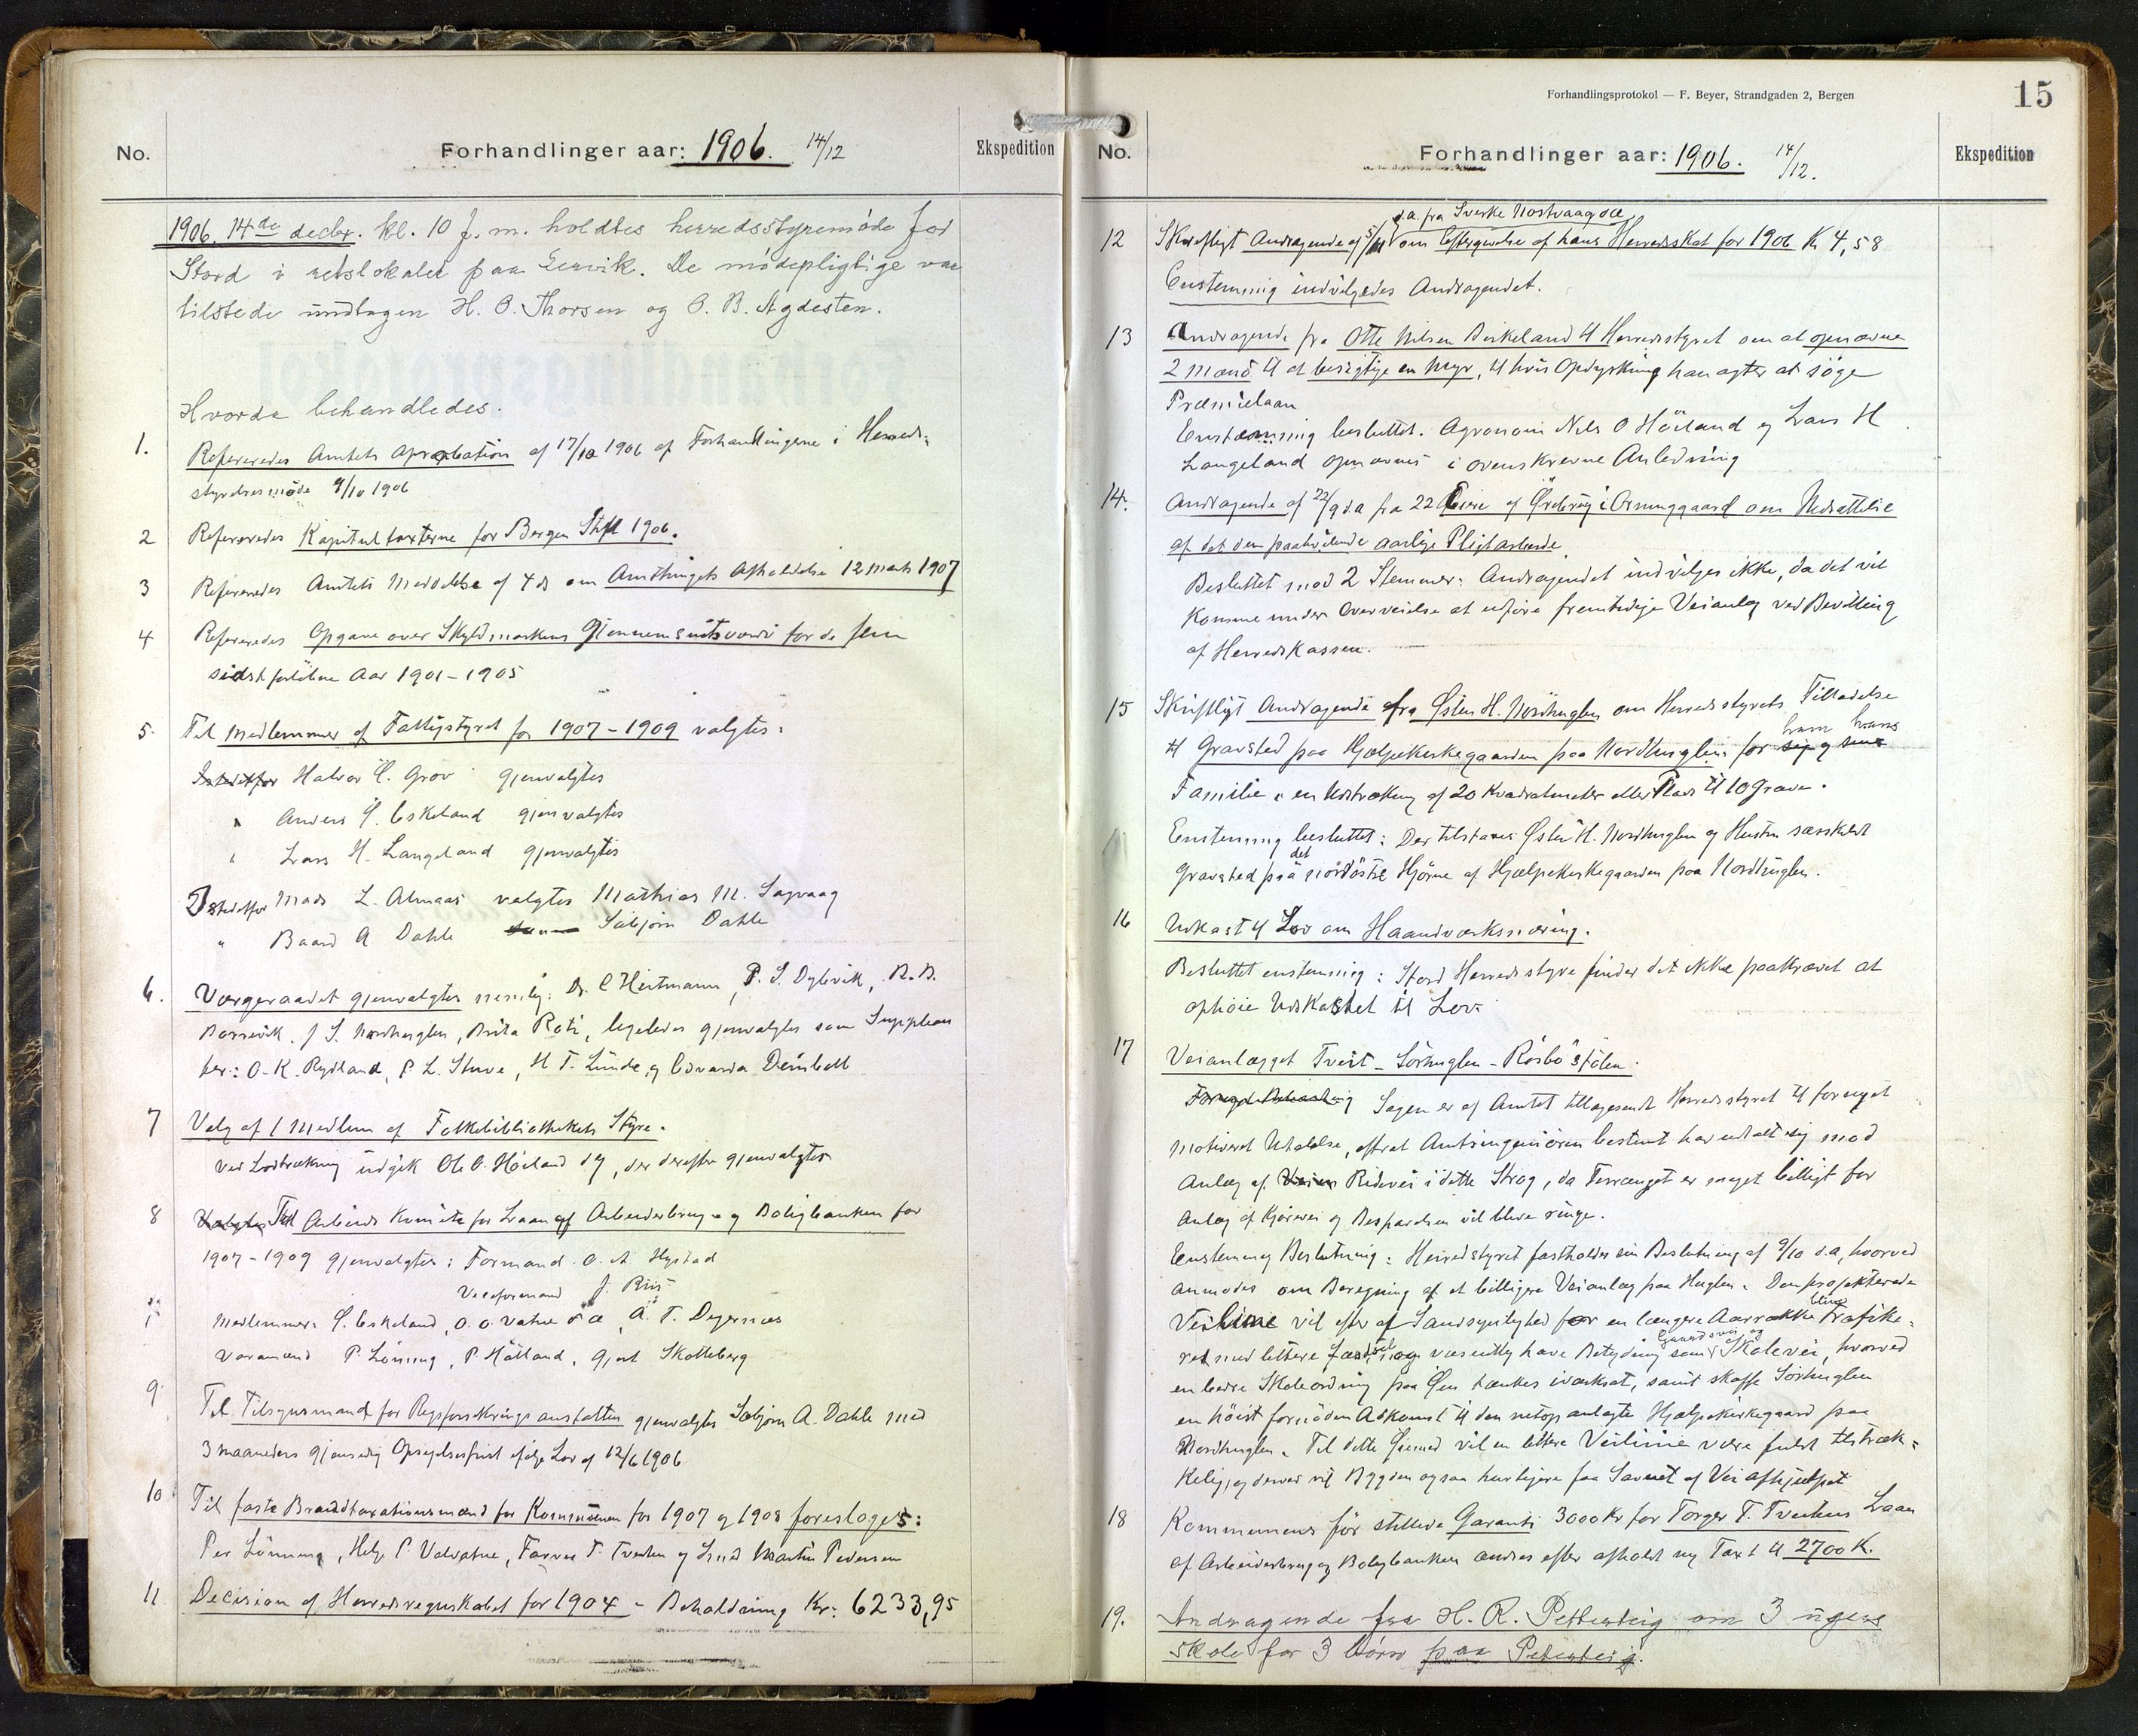 No.
Forhandlinger aar: 1906. 14/12
Ekspedition
1906. 14de decbr. kl. 10 f. m. holdtes herredsstyremöde for
Stord i retslokalet paa Lervik. De mödepligtige var
tilstede undtagen H. O. Thorsen og O. B. Agdesten.
Hvorda behandledes.
1. Refereredes Amtets Aprobation af 17/10 1906 af Forhandlingerne i Herreds-
styrelsesmöde 9/10 1906
2 Refereredes Kapitultaxterne for Bergen Stift 1906.
3 Refereredes Amtets Meddelelse af 4 ds om Amtthingets Afholdelse 12 marts 1907
4 Refereredes Opgave over Skyldmarkens Gjennemsnitsværdi for de fem
sidst forløbne Aar 1901-1905
5. Til Medlemmer af Fattigstyret for 1907-1909 valgtes:
Istedetfor Halvor Ö. Grov gjenvalgtes
" Anders Ö. Eskeland gjenvalgtes
" Lars H. Langeland gjenvalgtes
Istedetfor Mads L. Almaas valgtes Mathias M. Sagvaag
" Baard A Dahle Sæbjørn Dahle
6. Værgeraadet gjenvalgtes nemlig: Dr. C Heitmann, P. S. Dybvik, B. B.
Borrevik. J S. Nordhuglen, Brita Roti, ligeledes gjenvalgtes som Supplean
ter: O. K. Rydland, P L. Stuve, H T. Lunde, og Edvarda Deinboll
7 Valg af 1 Medlem af Folkebibliothekets Styre.
Ved Lodtrækning udgik Ole O. Höiland dy, der derefter gjenvalgtes
8 Valgtes Til Arbeids Komite for Laan af Arbeiderbrug- og Boligbanken for
1907-1909 gjenvalgtes: Formand O. A Hystad
Viceformand J. Riis
Medlemmer: Ö. Eskeland, O. O. Vatne d æ, A. T. Digernæs
Varamænd P. Lönning, P. Hätland, Gjert Skotteberg
9. Til Tilsynsmand for Rigsforsikringsanstalten gjenvalgtes Sæbjørn A. Dahle med
3 maaneders gjensidig Opsigelsesfrist ifølge Lov af 12/6 1906
10 Til faste Brandtaxationsmænd for Kommunen for 1907 og 1908 foresloges:
Per Lönning, Helge P. Valvatne, Farver T. Tveiten og Smed Martin Pedersen
11 Decision af Herredsregnskabet for 1904 - Beholdning Kr: 6233,95
Forhandlingsprotokol — F. Beyer, Strandgaden 2, Bergen
15
No.
Forhandlinger aar: 1906. 14/12.
Ekspedition
d.a. fra Sverke Nostvaag dæ
12 Skriftligt Andragende af 5/11 om Eftergivelse af hans Herredsskat for 1906 Kr 4,58
Enstemmig indvilgedes Andragendet.
13 Andragende fra Otte Nilsen Birkeland til Herredsstyret om at opnævne
2 mænd til at besigtige en Myr, til hvis Opdyrkning han agter at söge
Præmielaan
Enstemmig besluttet. Agronom Nils O Höiland og Lars H
Langeland opnævnes i ovenskrevne Anledning
14. Andragende af 22/9 d a fra 22 Eiere af Ørebrug i Ornunggaard om Nedsættelse
af det dem paahvilende aarlige Pligtarbeide.
Besluttet mod 2 Stemmer: Andragendet indvilges ikke, da det vil
komme under Overveielse at udføre fremtidige Veianlæg ved Bevilling
af Herredskassen.
15 Skriftligt Andragende fra Østen H. Nordhuglen om Herredsstyrets Tilladelse
ham hans
til Gravsted paa Hjælpekirkegaarden paa Nordhuglen for sig og sine
Familie i en Udstrækning af 20 Kvadratmeter eller Plads til 10 Grave.
Enstemmig besluttet: Der tilstaaes Østen H. Nordhuglen og Hustru særskildt
det
Gravsted paa nordöstre Hjörne af Hjælpekirkegaarden paa Nordhuglen.
16 Udkast til Lov om Haandværksnæring.
Besluttet enstemmig: Stord Herredsstyre finder det ikke paakrævet at
ophöie Udkastet til Lov.
17 Veianlægget Tveit - Sörhuglen - Rösbö stölen.
Sagen er af Amtet tilbagesendt Herredsstyret til fornyet
motiveret Udtalelse, efterat Amtsingeniören bestemt har udtalt sig mod
Anlæg af Veien Ridevei i dette Strøg, da Terrænget er meget billigt for
Anlæg af Kjörevei og Besparelsen vil blive ringe.
Enstemmig Beslutning: Herredsstyret fastholder sin Beslutning af 9/10 d.a, hvorved
anmodes om Beregning af et billigere Veianlæg paa Huglen. Den projekterede
blive
Veilinie vil efter al Sandsynlighed for en længere Aarrække trafike-
Gaardsvei og
ret med lettere væsentlig have Betydning som Skolevei, hvorved
en bedre Skoleordning paa Øen tænkes iværksat, samt skaffe Sörhuglen
en höist fornöden Adkomst til den netop anlagte Hjælpekirkegaard paa
Nordhuglen. Til dette Öiemed vil en lettere Veilinie være fuldt tilstræk-
kelig, og derved vil Bygden ogsaa hurtigere faa Savnet af Vei afhjulpet
18 Kommunens för stillede Garanti 3000 Kr for Torger T. Tveitens Laan
af Arbeiderbrug og Boligbanken ændres efter afholdt ny Taxt til 2700 K.
19. Andragende fra H. R. Petterteig om 3 ugers
skole for 3 börn paa Petterteig.